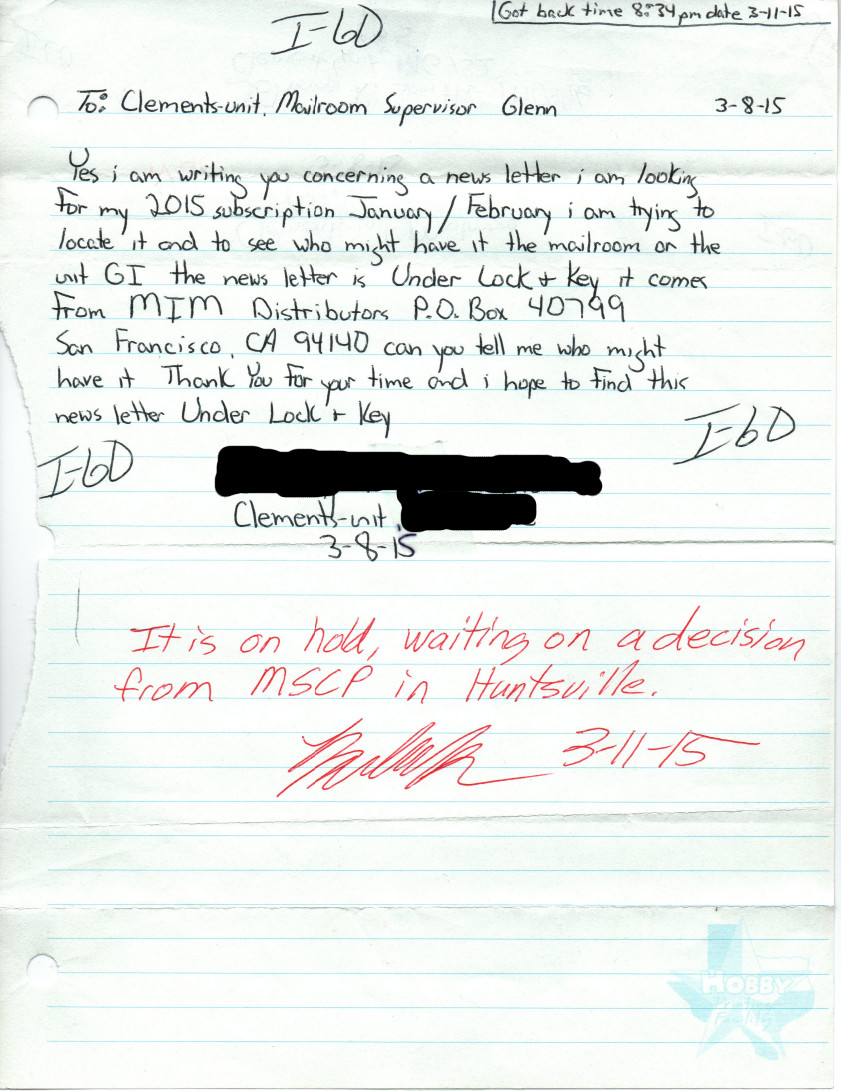 I-60
Got back time 8:34 pm date 3-11-15
To: Clements-unit, Mailroom Supervisor Glenn 3-8-15
Yes i am writing you concerning a news letter i am looking
for my 2015 subscription January/February i am trying to
locate it and to see who might have it the mailroom or the
unit GI the news letter is Under Lock & Key it comes
from MIM Distributors P.O. Box 40799
San Francisco, CA 94140 can you tell me who might
have it Thank You for your time and i hope to find this
news letter Under Lock & Key
I-60
I-60
Clements-unit
3-8-15
It is on hold, waiting on a decision
from MSCP in Huntsville.
3-11-15
HOBBY
Facility